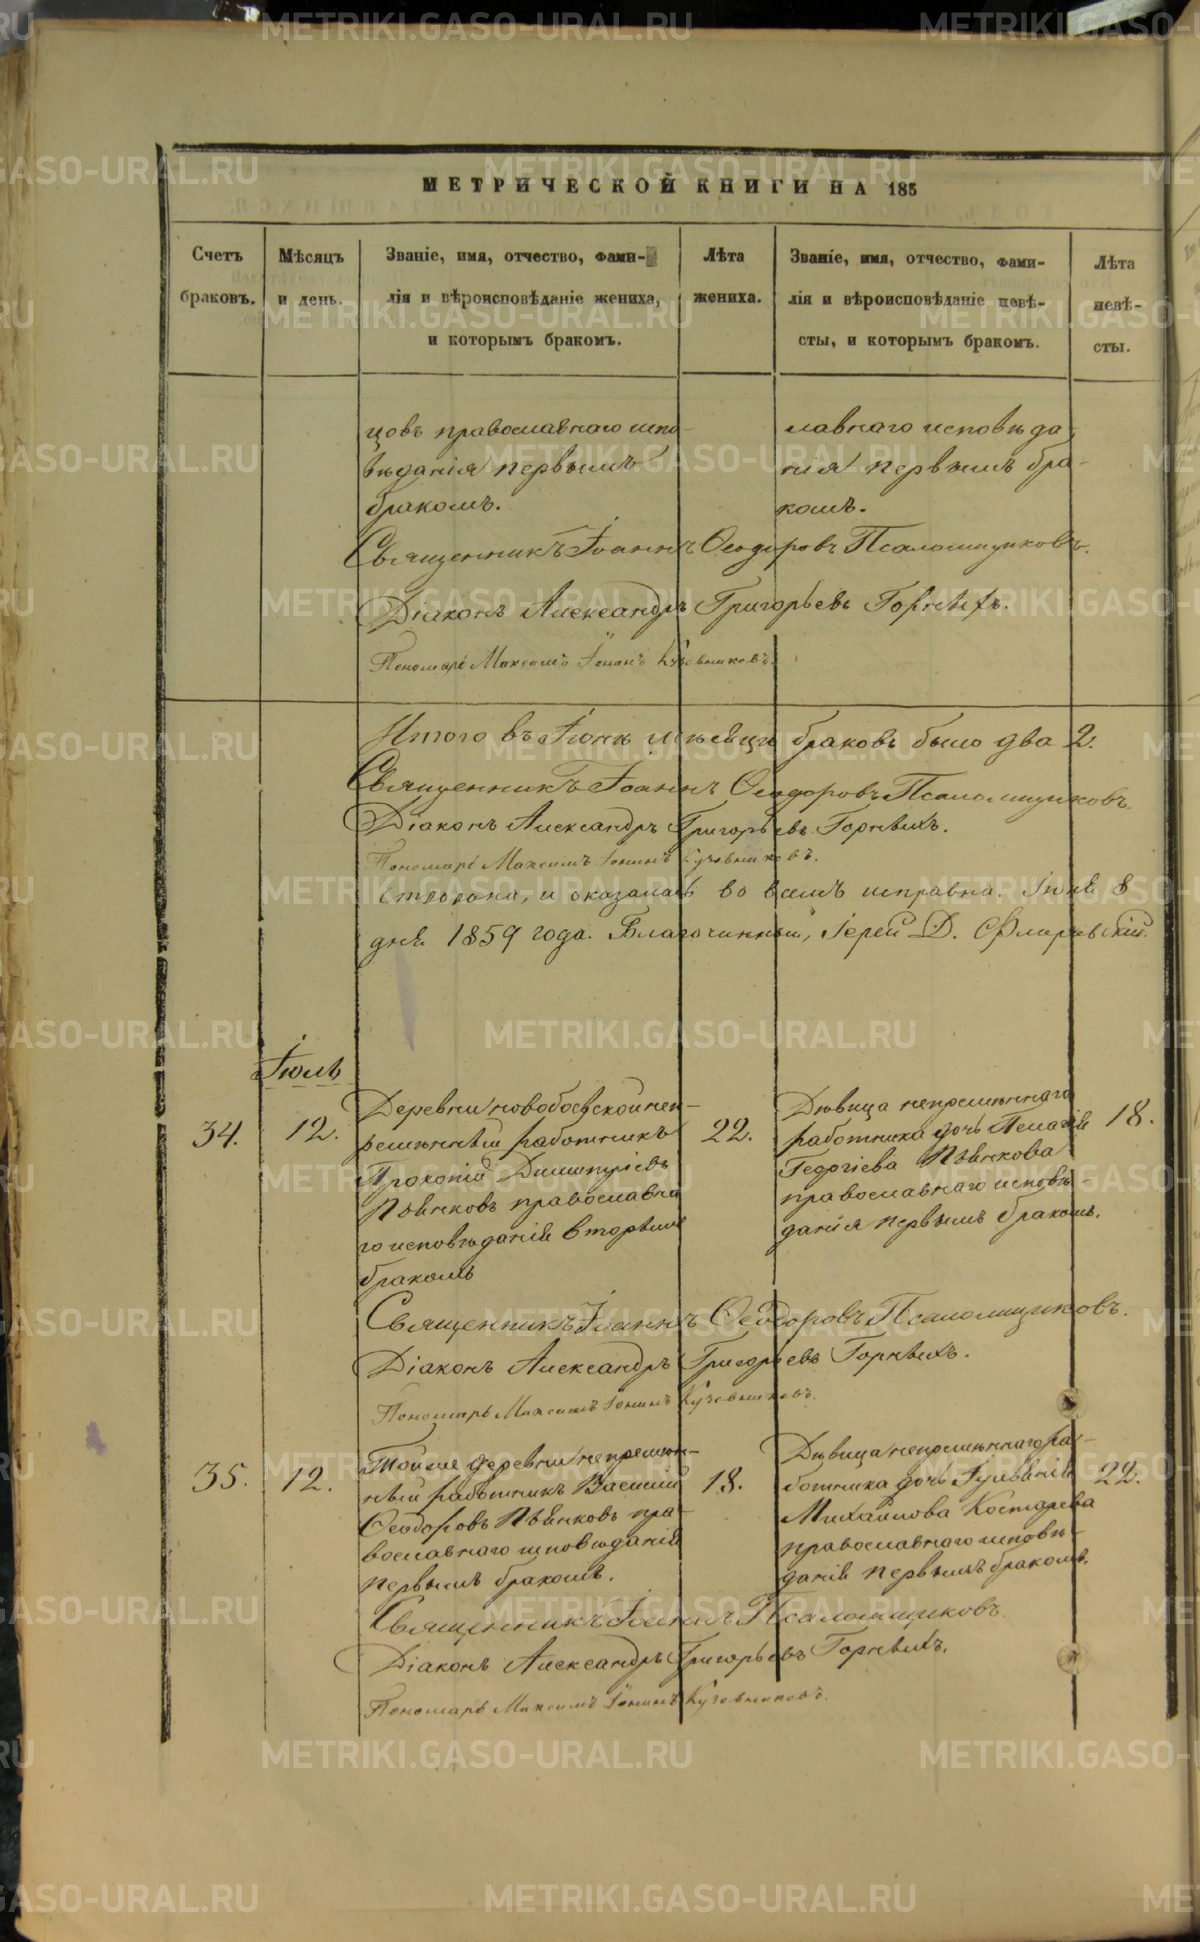 МЕТРИЧЕСКОЙ КНИГИ НА 185
Счетъ браковъ.
Мѣсяцъ и день.
Званіе, имя, отчество, фами-
лія и вѣроисповѣданіе жениха,
и которымъ бракомъ.
Лѣта жениха.
Званіе, имя, отчество, фами-
лія и вѣроисповѣданіе невѣ-
сты, и которымъ бракомъ.
Лѣта невѣ-
сты.
цовъ православнаго испо-
вѣданія первымъ
бракомъ.
лавнаго исповѣда
нія первымъ бра-
комъ.
Священникъ Іоаннъ Ѳеодоровъ Псаломщиковъ.
Діаконъ Александръ Григорьевъ Горныхъ.
Пономарь Максимъ Іонинъ Кузовниковъ.
Итого въ Іюнѣ мѣсяцѣ браковъ было два 2.
Священникъ Іоаннъ Ѳеодоровъ Псаломщиковъ.
Діаконъ Александръ Григорьевъ Горныхъ.
Пономарь Максимъ Іонинъ Кузовниковъ.
и оказалась во всемъ исправна. 8
дня 1859 года. Благочинный, Іерей Д.
Іюль
34.
12.
Деревни Новобоевской неп-
ремѣнный работникъ
Прокопій Димитріевъ
Пьянковъ православна
го исповѣданія вторымъ
бракомъ
22.
Дѣвица непремѣннаго
работника дочь Пелагія
Георгіева Пьянкова
православнаго исповѣ-
данія первымъ бракомъ.
18.
Священникъ Іоаннъ Ѳеодоровъ Псаломщиковъ.
Діаконъ Александръ Григорьевъ Горныхъ.
Пономарь Максимъ Іонинъ Кузовниковъ.
35.
12.
Тойже деревни непремѣн-
ный работникъ Василій
Ѳеодоровъ Пьянковъ пра-
вославнаго исповѣданія
первымъ бракомъ.
18.
Дѣвица непремѣннаго ра-
ботника дочь Іуліанія
Михайлова Костарева
православнаго исповѣ-
данія первымъ бракомъ.
22.
Священникъ Іоаннъ Псаломщиковъ.
Діаконъ Александръ Григорьевъ Горныхъ.
Пономарь Максимъ Іонинъ Кузовниковъ.
METRIKI.GASO-URAL.RU